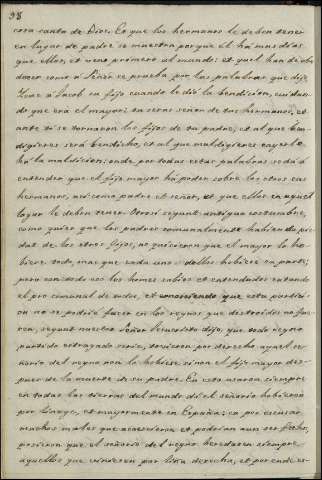 38
cosa santa de Dios. Et que los hermanos le deben tener
en lugar de padre se muestra porque él há mas dias
que ellos, et veno primero al mundo: et quel han de obe
decer como á Señor se prueba por las palabras que dixo
Isac á Jacob su fijo cuando le dió la bendicion, cuidan
do que era el mayor: tu serás señor de tus hermanos, et
ante ti se tornarán los fijos de tu padre, et al que ben
digieres será bendicho, et al que maldigieres cayerle
ha la maldicion: onde por todas estas palabras se dá á
entender que el fijo mayor há poder sobre los otros sus
hermanos, asi como padre et señor, et que ellos en aquel
lugar le deben tener. Otrosi segunt antigua costumbre,
como quier que los padres comunalmente habiendo pie
dat de los otros fijos, no quisieron que el mayor lo ho
biese todo, mas que cada uno dellos hobiese su parte;
pero con todo eso los homes sabios et entendudos catando
el pro comunal de todos, et conosciendo que esta particio
on no se podrie facer en los reynos que destroidos no fue
sen, segunt nuestro señor Jesucristo dijo, que todo reyno
partido estragado serie, tovieron por derecho aquel se
ñorio del reyno non lo hobiese sinon el fijo mayor des
pues de la muerte de su padre. Et esto usaron siempre
en todas las tierras del mundo dó el señorio hobieron
por linage, et mayormente en España: ca por escusar
muchos males que acaescieron et podrian aun ser fechos,
posieron que el señorio del regno heredasen siempre
aquellos que viniesen por liña derecha, et por ende es-